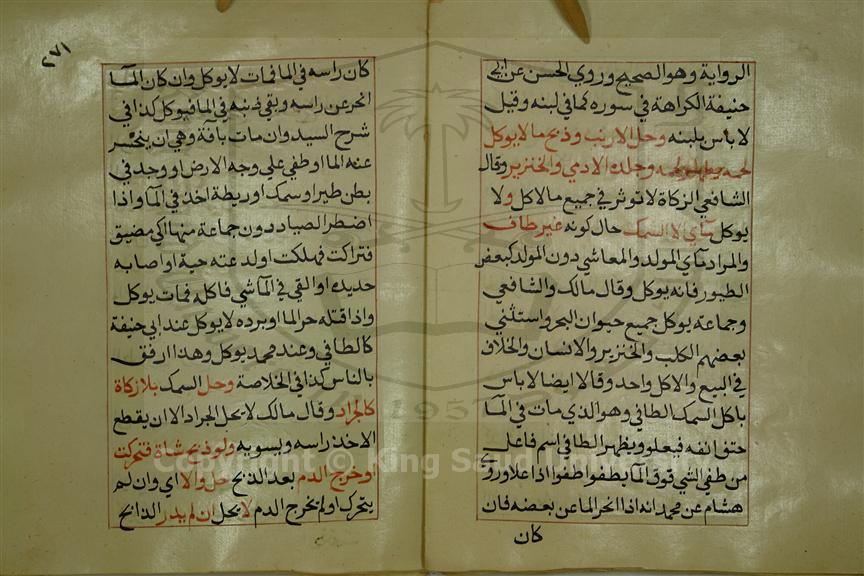 الرواية وهو الصحيح وروي الحسن عن ابي
حنيفة الكراهة في سوره كما في لبنه وقيل
لا باس بلبنه وحل الارنب وذبح ما لا يوكل
لحمه يطهر لحمه وجلده الا الادمي والخنزير وقال
الشافعي الزكاة لا توثر في جميع ما لا كل ولا
يوكل مآي الا السمك حال كونه غير طاف
والمراد مآي المولد والمعاشي دون المولد كبعض
الطيور فانه يوكل وقال مالك والشافعي
وجماعة يوكل جميع حيوان البحر واستثني
بعضهم الكلب والخنزير والانسان والخلاف
في البيع والاكل واحد وقالا ايضا لا باس
باكل السمك الطافي وهو الذي مات في المآ
حتف انفه فيعلو ويظهر الطافي اسم فاعل
من طفي الشي فوق المآ يطفو اطفوا اذا علا وروي
هشام عن محمد انه اذا انحر الما عن بعضه فان
كان
٢٧١
كان راسه في الما فمات لا يوكل وان كان المآ
انحر عن راسه وبقي ذنبه في الما فيوكل كذا في
شرح السيد وان مات بافة وهي ان ينحسر
عنه الما او طفي علي وجه الارض او وجد في
بطن طير او سمك او ربطة احد في المآ واذا
اضطر الصياد دون جماعة منها الي مضيق
فتراكت فهلكت او لدعته حية او اصابه
حديده او القي في المآ شي فاكله فمات يوكل
واذا قتله حر الما او برده لا يوكل عند ابي حنيفة
كالطافي وعند محمد يوكل وهذا ارفق
بالناس كذا في الخلاصة وحل السمك بلا زكاة
كالجراد وقال مالك لا يحل الجراد الا ان يقطع
الاخذ راسه ويسويه ولو ذبح شاة فتحركت
او خرج الدم بعد الذبح حل والا اي وان لم
يتحرك او لم يخرج الدم لا يحل ان لم يدر الذابح
Copyright © King Saud University
1957